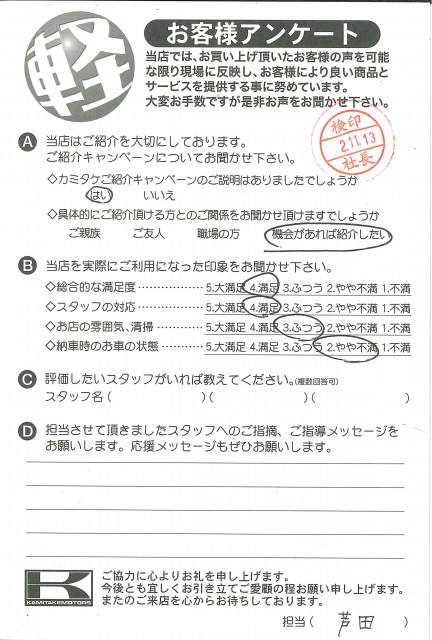 軽
お客様アンケート
当店では、お買い上げ頂いたお客様の声を可能
な限り現場に反映し、お客様により良い商品と
サービスを提供する事に努めています。
大変お手数ですが是非お声をお聞かせ下さい。
検印
2.11.13
社長
A 当店はご紹介を大切にしております。
ご紹介キャンペーンについてお聞かせ下さい。
◇カミタケご紹介キャンペーンのご説明はありましたでしょうか
はい いいえ
◇具体的にご紹介頂ける方とのご関係をお聞かせ頂けますでしょうか
ご親族 ご友人 職場の方 機会があれば紹介したい
B 当店を実際にご利用になった印象をお聞かせ下さい。
◇総合的な満足度 ………………… 5.大満足 4.満足 3.ふつう 2.やや不満 1.不満
◇スタッフの対応 ………………… 5.大満足 4.満足 3.ふつう 2.やや不満 1.不満
◇お店の雰囲気、清掃 …………… 5.大満足 4.満足 3.ふつう 2.やや不満 1.不満
◇納車時のお車の状態 …………… 5.大満足 4.満足 3.ふつう 2.やや不満 1.不満
C 評価したいスタッフがいれば教えてください。(複数回答可)
スタッフ名( )( )( )
D 担当させて頂きましたスタッフへのご指摘、ご指導メッセージを
お願いします。応援メッセージもぜひお願いします。
K
KAMITAKEMOTORS
ご協力に心よりお礼を申し上げます。
今後とも宜しくお引き立てご愛顧の程お願い申し上げます。
またのご来店を心からお待ちしております。
担当( 芦田 )